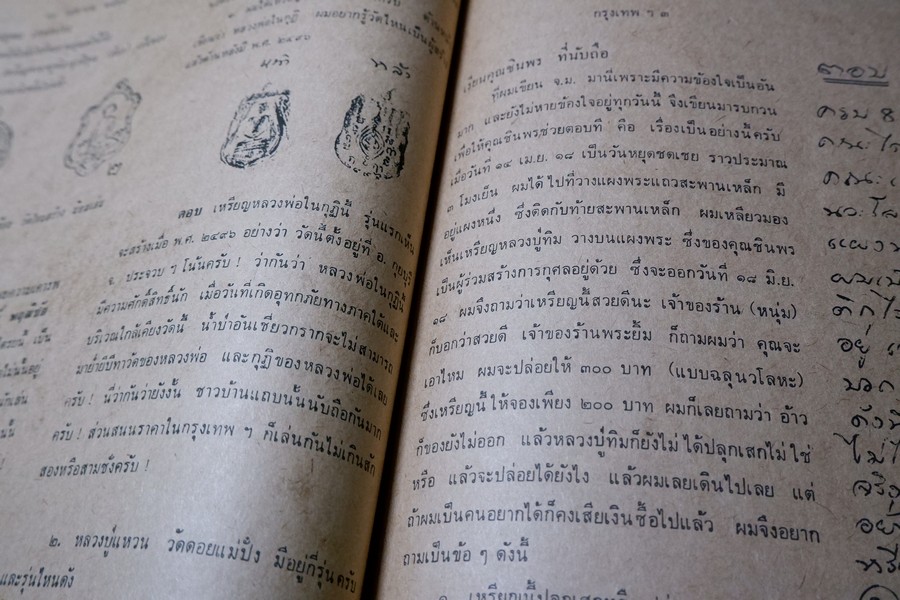 พ.ศ. ๒๔๙๖
หน้า
หลัง
๒
ตอบ เหรียญหลวงพ่อในกุฏินี้ รุ่นแรกเห็น
จะสร้างเมื่อ พ.ศ. ๒๔๙๖ อย่างว่า วัดนี้ตั้งอยู่ที่ อ. กุยบุรี
จ. ประจวบ ฯ โน้นครับ ! ว่ากันว่า หลวงพ่อในกุฏินี้
มีความศักดิ์สิทธิ์นัก เมื่อวันที่เกิดอุทกภัยทางภาคใต้และ
บริเวณใกล้เคียงวัดนี้ น้ำบ่าอันเชี่ยวกรากจะไม่สามารถ
มาย่ำยีบีฑาวัดของหลวงพ่อ และกุฏิของหลวงพ่อได้เลย
ครับ ! นี่ว่ากันว่ายังงั้น ชาวบ้านแถบนั้นนับถือกันมาก
ครับ ! ส่วนสนนราคาในกรุงเทพ ฯ ก็เล่นกันไม่เกินสัก
สองหรือสามชั่งครับ !
๒. หลวงปู่แหวน วัดดอยแม่ปั๋ง มีอยู่กี่รุ่นครับ
และรุ่นไหนดัง
กรุงเทพ ฯ ๓
เรียนคุณชินพร ที่นับถือ
ที่ผมเขียน จ.ม. มานี้เพราะมีความข้องใจเป็นอัน
มาก และยังไม่หายข้องใจอยู่ทุกวันนี้ จึงเขียนมารบกวน
เพื่อให้คุณชินพรช่วยตอบที คือ เรื่องเป็นอย่างนี้ครับ
เมื่อวันที่ ๑๔ เม.ย. ๑๘ เป็นวันหยุดชดเชย ราวประมาณ
๓ โมงเย็น ผมได้ไปที่วางแผงพระแถวสะพานเหล็ก มี
อยู่แผงหนึ่ง ซึ่งติดกับท้ายสะพานเหล็ก ผมเหลียวมอง
เห็นเหรียญหลวงปู่ทิม วางบนแผงพระ ซึ่งของคุณชินพร
เป็นผู้ร่วมสร้างการกุศลอยู่ด้วย ซึ่งจะออกวันที่ ๑๘ มิ.ย.
๑๘ ผมจึงถามว่าเหรียญนี้สวยดีนะ เจ้าของร้าน (หนุ่ม)
ก็บอกว่าสวยดี เจ้าของร้านพระยิ้ม ก็ถามผมว่า คุณจะ
เอาไหม ผมจะปล่อยให้ ๓๐๐ บาท (แบบฉลุนวโลหะ)
ซึ่งเหรียญนี้ให้จองเพียง ๒๐๐ บาท ผมก็เลยถามว่า อ้าว
ก็ของยังไม่ออก แล้วหลวงปู่ทิมก็ยังไม่ได้ปลุกเสกไม่ใช่
หรือ แล้วจะปล่อยได้ยังไง แล้วผมเลยเดินไปเลย แต่
ถ้าผมเป็นคนอยากได้ก็คงเสียเงินซื้อไปแล้ว ผมจึงอยาก
ถามเป็นข้อ ๆ ดังนี้
ตอบ
ครบ
อยู่